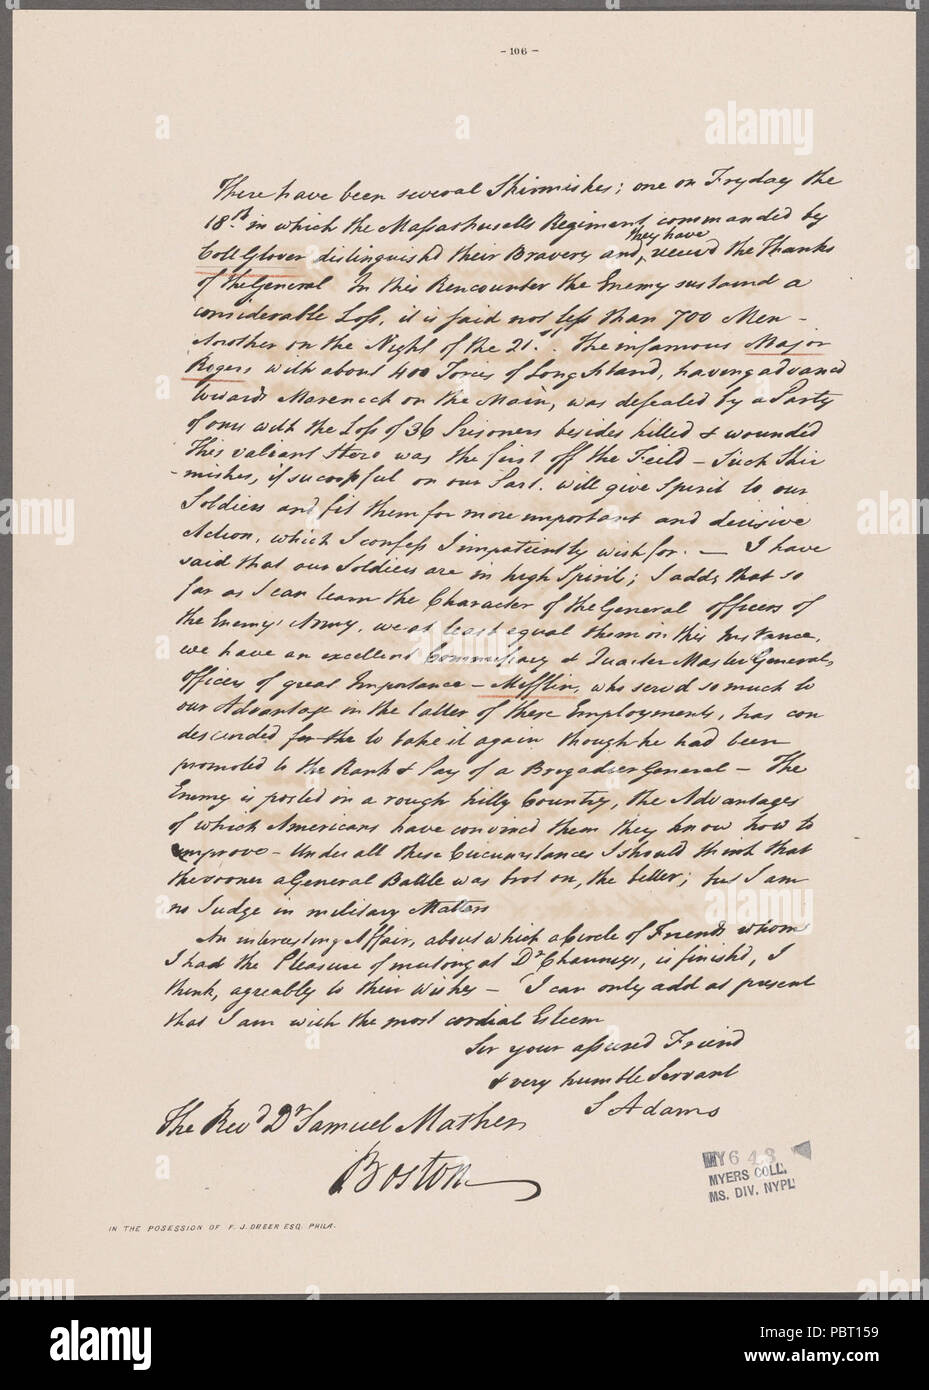 - 106 -
There have been several Skirmishes; one on Fryday the
18th. in which the Massachusetts Regiment commanded by
Coll Glover distinguishd their Bravery and, they have receivd the Thanks
of the General In this Rencounter the Enemy sustaind a
considerable Loss, it is said not less than 700 Men -
Another on the Night of the 21st. The infamous Major
Rogers with about 400 Tories of Long Island, having advancd
towards Mareneck on the Main, was defeated by a Party
of ours with the Loss of 36 Prisoners besides killed & wounded
This valiant Hero was the first off the Feild - Such Skir
-mishes, if successful on our Part, will give Spirit to our
Soldiers and fit them for more important and decisive
Action, which I confess I impatiently wish for. - I have
said that our Soldiers are in high Spirit; I add, that so
far as I can learn the Character of the General officers of
the Enemys Army, we at least equal them in this Instance.
we have an excellent Commissary & Quarter Master General,
officers of great Importance - Mifflin, who servd so much to
our Advantage in the latter of these Employments, has con
descended for the to take it again though he had been
promoted to the Rank & Pay of a Brigadier General - The
Enemy is posted in a rough hilly Country, the Advantages
of which Americans have convincd them they know how to
improve - Under all these Circumstances I should think that
the sooner a General Battle was brot on, the better; but I am
no Judge in military Matters
An interesting Affair, about which a Circle of Friends whom
I had the Pleasure of meeting at Dr Chauncys, is finishd, I
think, agreably to their Wishes - I can only add at present
that I am with the most cordial Esteem
Sir your assured Friend
& very humble Servant
S Adams
The Revd Dr Samuel Mather
Boston
MY 643
MYERS COLL.
MS. DIV. NYPL
IN THE POSESSION OF F. J. DREER ESQ. PHILA.
a
alamy
alamy
www.alamy.com
Image ID: PBT159
PBT159